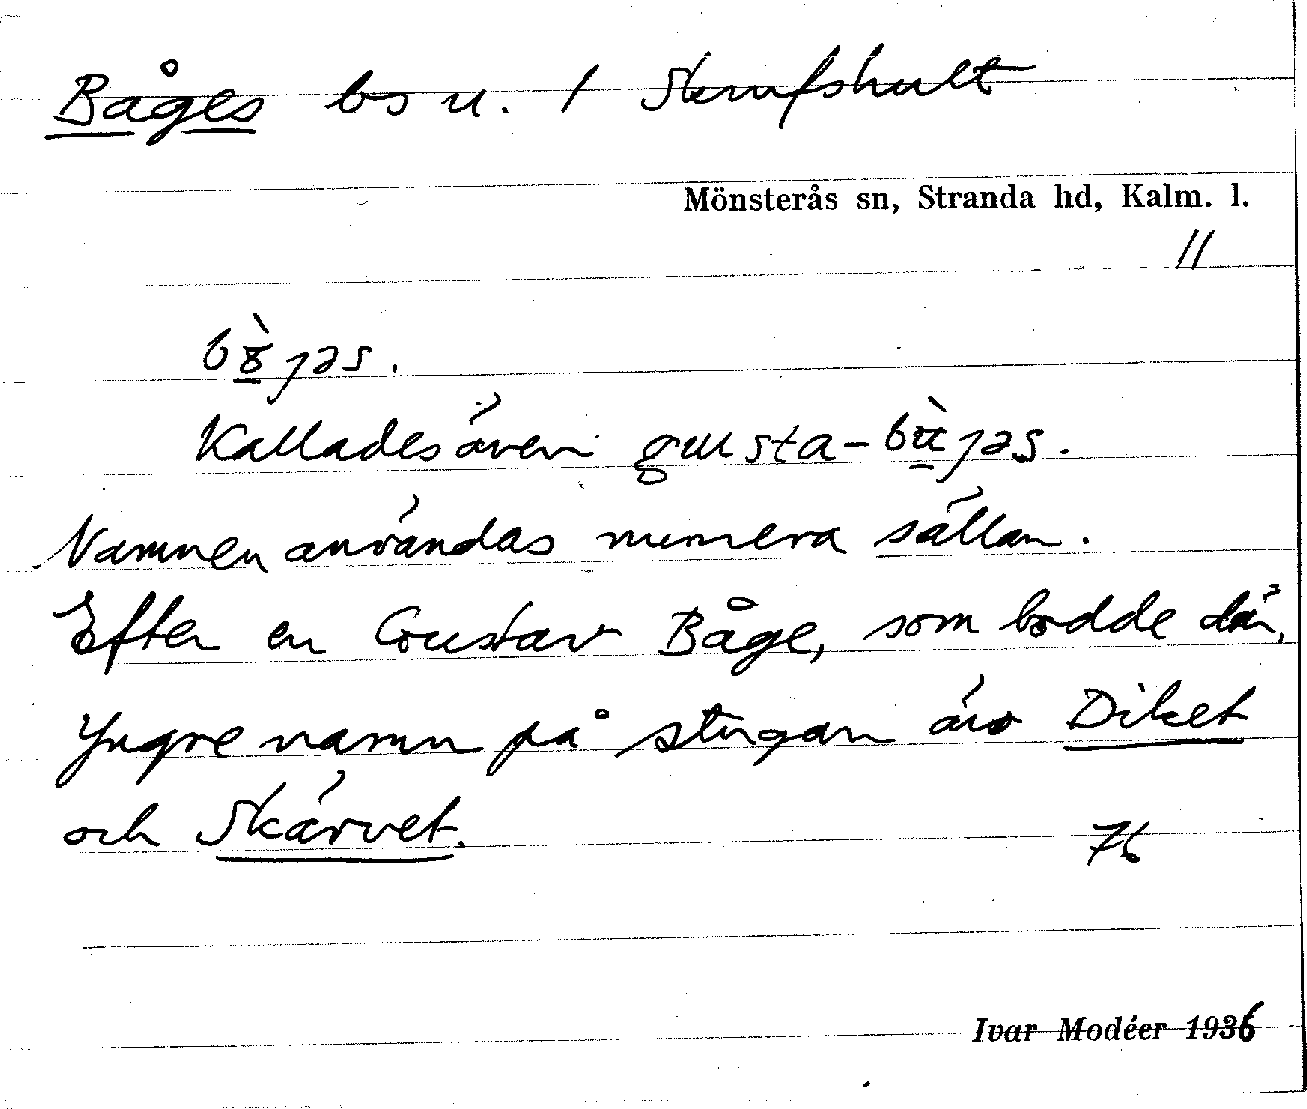 Båges bs u. 1 Skrufshult
Mönsterås sn, Stranda hd, Kalm. l.
11
Kallades även gusta-
Namnen användas numera sällan.
Efter en Gustav Båge, som bodde där.
Yngre namn på stugan äro Diket
och Skärvet.
76
Ivar Modéer 1936